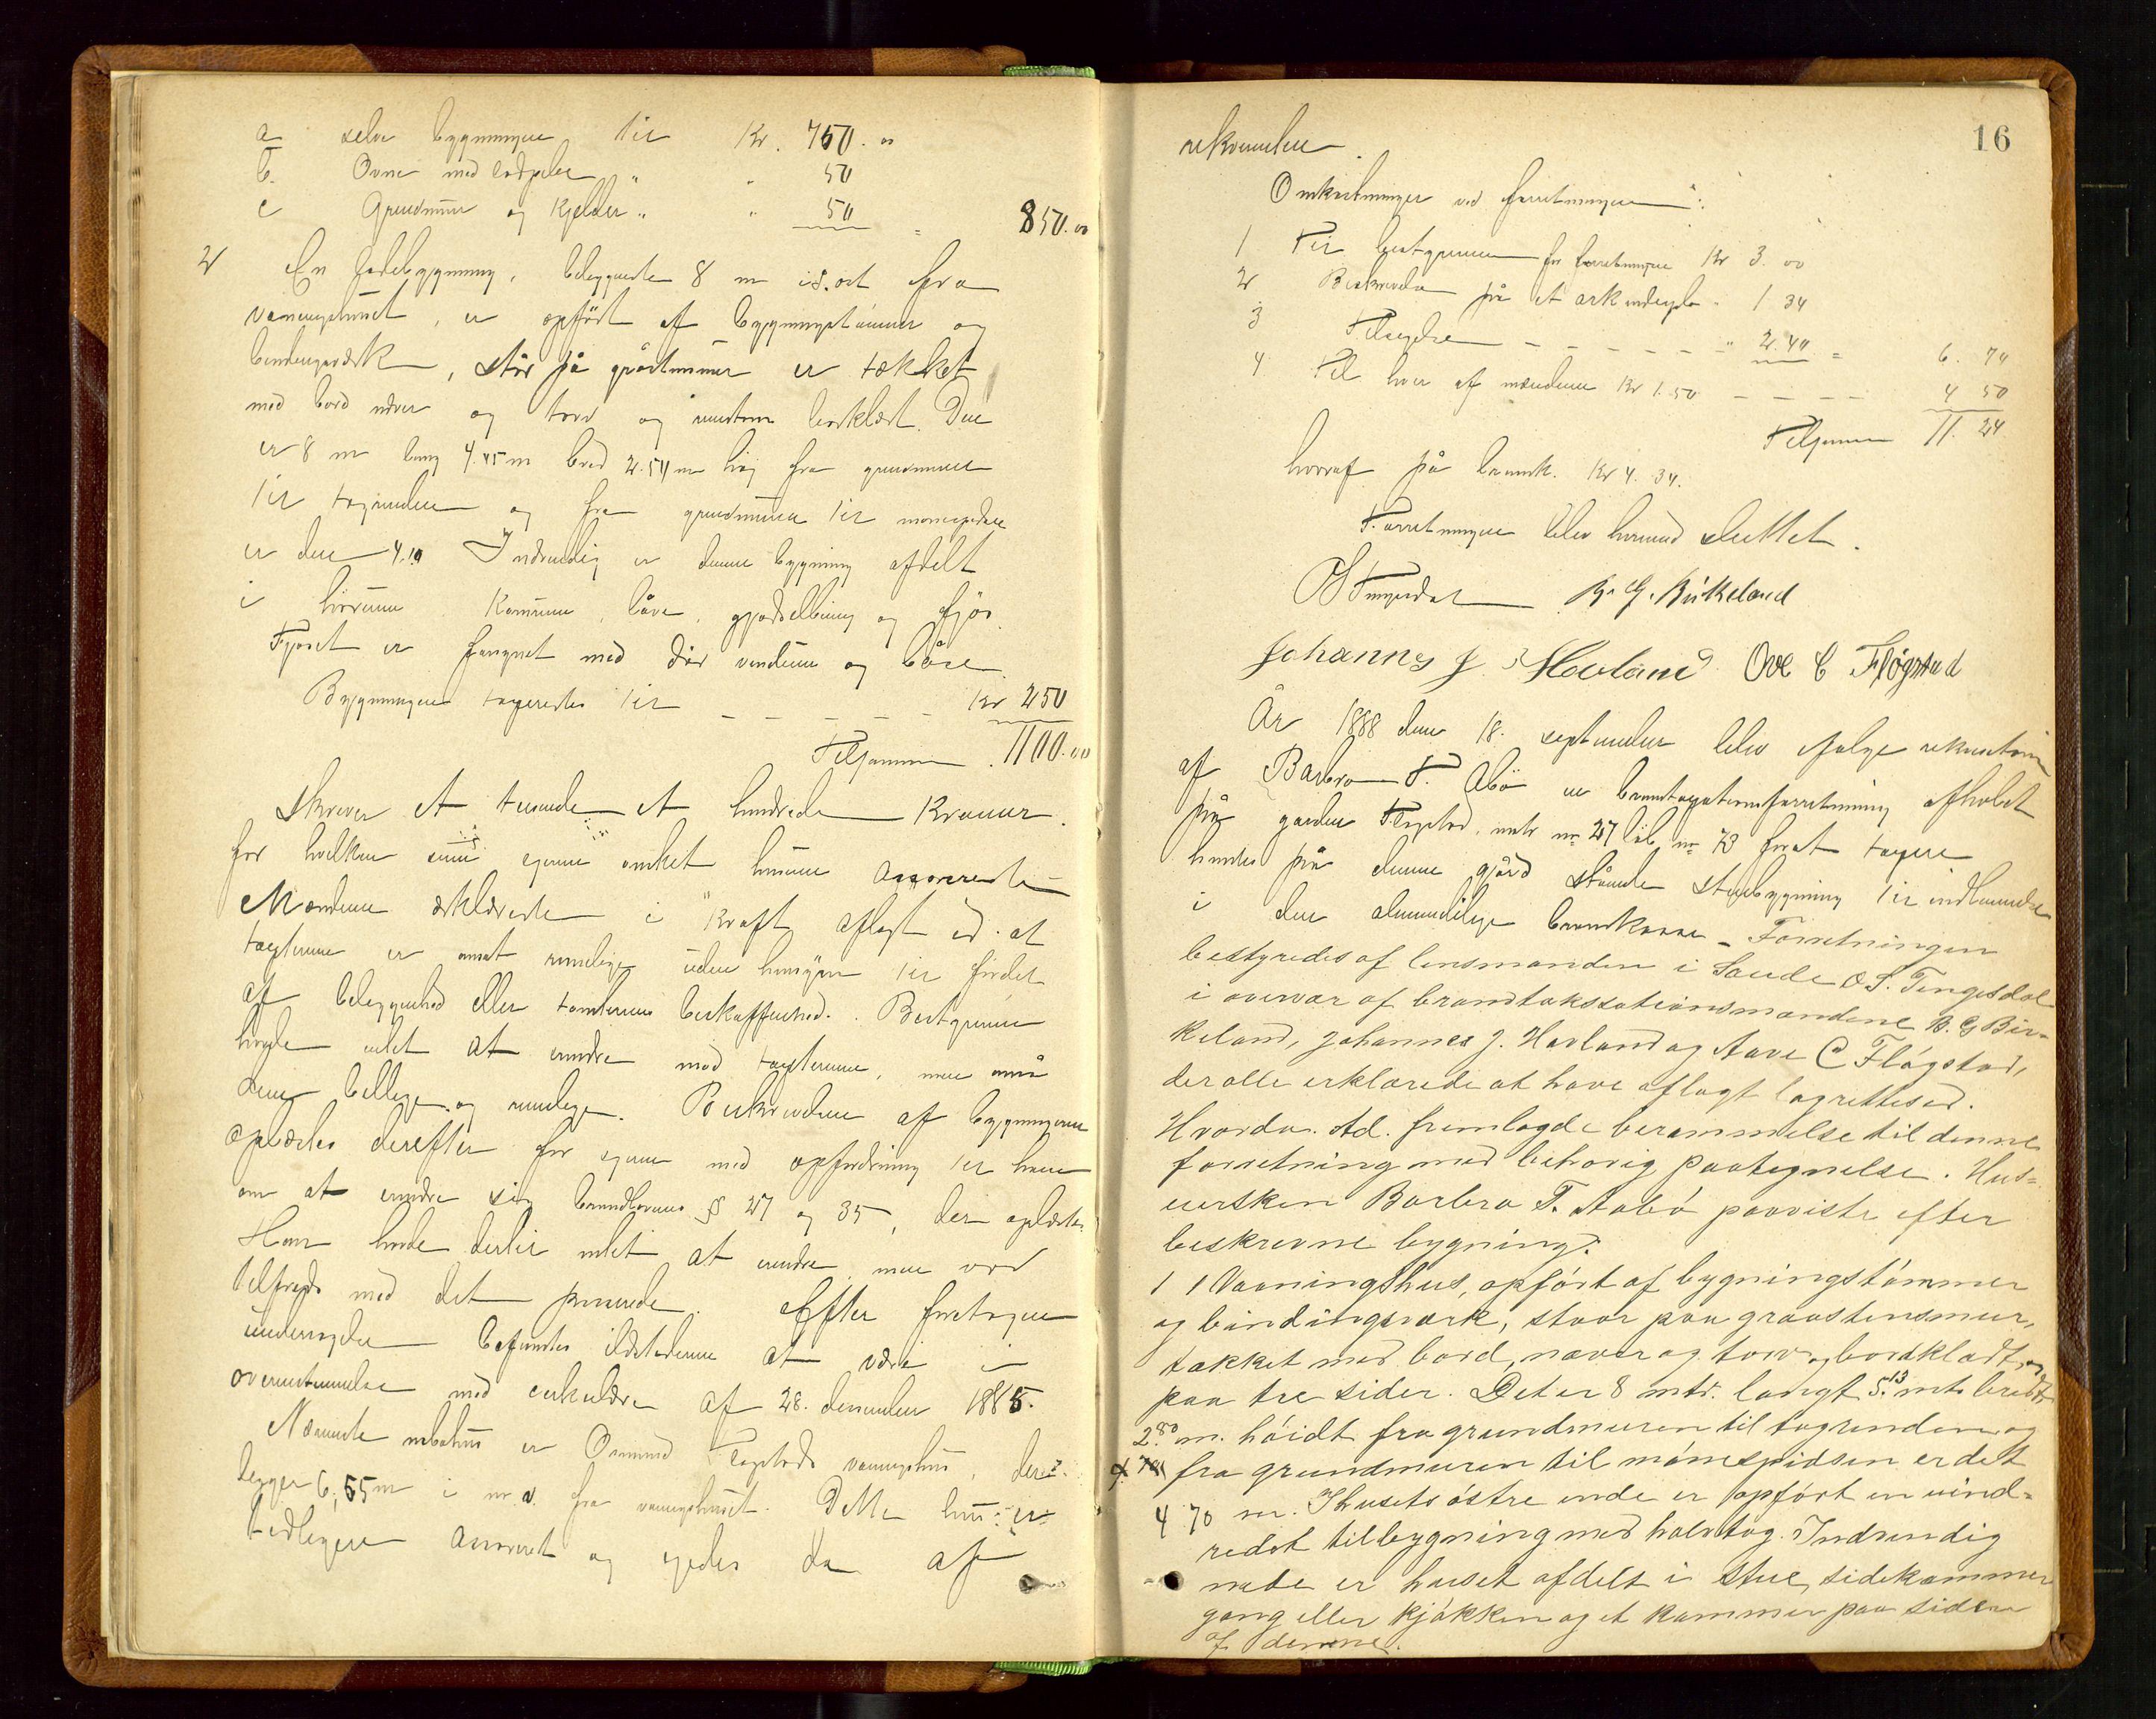 a selve bygningen til Kr. 750.00
b. Ovne med rødpibe " " 50
c Grundmur og Kjelder " " 50 = 850.00
2 En ladebygning, beliggende 8 m i s. ost fra
vaaningshuset, er opført af bygningstømmer og
bindingsværk, står på gråstensmur er tækket
med bord næver og torv og rundtom bordklædt. Den
er 8 m lang 4.45 m bred 2.50 m høj fra grundmuren
til tagrenden og fra grundmuren til mønespidsen
er den 4.10 Indvendig er denne bygning afdelt
i kornrum, låve, og fjøs.
Fjøset er forsynet med dør vinduer og båse.
Bygningen taxeredes til - - - - - Kr 250
Tilsammen 1100.00
skriver et tusinde et hundrede Kroner.
for hvilken sum eieren ønsket husene assurerede
Mændene erklærede i Kraft aflagt ed at
taxterne er ansat rimelige uden hensyn til fordel
af beliggenhed eller tomternes beskaffenhed. Bestyreren
havde intet at erindre mod taxterne, men anså
dem billige og rimelige. Beskrivelsen af bygningerne
oplæstes derefter for eieren med opfordring til ham
om at erindre sig brandlovens § 27 og 35, der oplæstes.
Han havde dertil intet at erindre men var
tilfreds med det passerede. Efter foretagen
undersøgelse befandtes ildstederne at være i
overensstemmelse med cirkulære af 28. december 1885.
Nærmeste nabohus er vaaningshus, der
ligger 6,55 m i n.v. fra vaaningshuset. Dette hus er
tidligere assureret og eiedes da af
16
rekvirenten.
Omkostninger ved forretningen:
1 Til bestyreren for forretningen Kr 3.00
2 Beskrivelse på et ark 1 34
3 Tilsigelse - - - - - - " 2.40 = 6.74
4. Til hver af mændene Kr 1.50 - - - - 4 50
Tilsammen 11.24
hvoraf på brandk. Kr 4.34.
Forretningen blev hermed sluttet.
O S Tengesdal B. G. Birkeland
Johannes J. Havland Ove C Fløgstad
År 1888 den 18. september blev ifølge rekvisition
af Barbro T. Abø en brandtaxationsforretning afholdt
på garden Fløgstad, matr no 27 løb no 73 forat taxere
hendes på denne gård stående stuebygning til indlemmelse
i den almindelige brandkasse - Forretningen
bestyredes af lensmanden i Saude O. S. Tengesdal
i overvær af brandtakstationsmændene B. G. Bir-
keland, Johannes J. Havland og Aave C Fløgstad,
der alle erklærede at have aflagt lagrettesed.
Hvorda. Ad. fremlagde berammelse til denne
forretning med behørig paategnelse. Hus=
eiersken Barbra T. Aabø paaviste efter
beskrevne bygning:
1 1 Vaaningshus, opført af bygningstømmer
og bindingsværk, staar paa graastensmur,
tækket med bord, næver og torv og bordklædt
paa tre sider. Det er 8 mtr. langt 5.13 mtr bredt
2.80 m. høidt fra grundmuren til tagrenden og
fra grundmuren til mønespidsen er det
4.70 m. I husets østre ende er opført en uind=
redet tilbygning med halvtag. Indvendig
nede er huset afdelt i stue, sidekammer
gang eller kjøkken og et kammer paa siden
af denne.